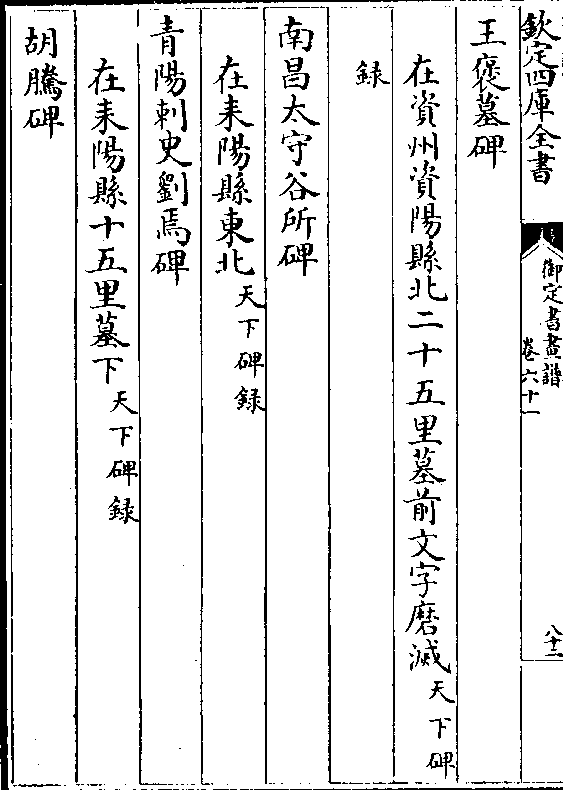 欽定四庫全書
御定書畫譜
卷六十一
八十二
王褒墓碑
在資州資陽縣北二十五里墓前文字磨滅天下碑
録
南昌太守谷所碑
在耒陽縣東北天下碑録
青陽刺史劉焉碑
在耒陽縣十五里墓下天下碑録
胡騰碑